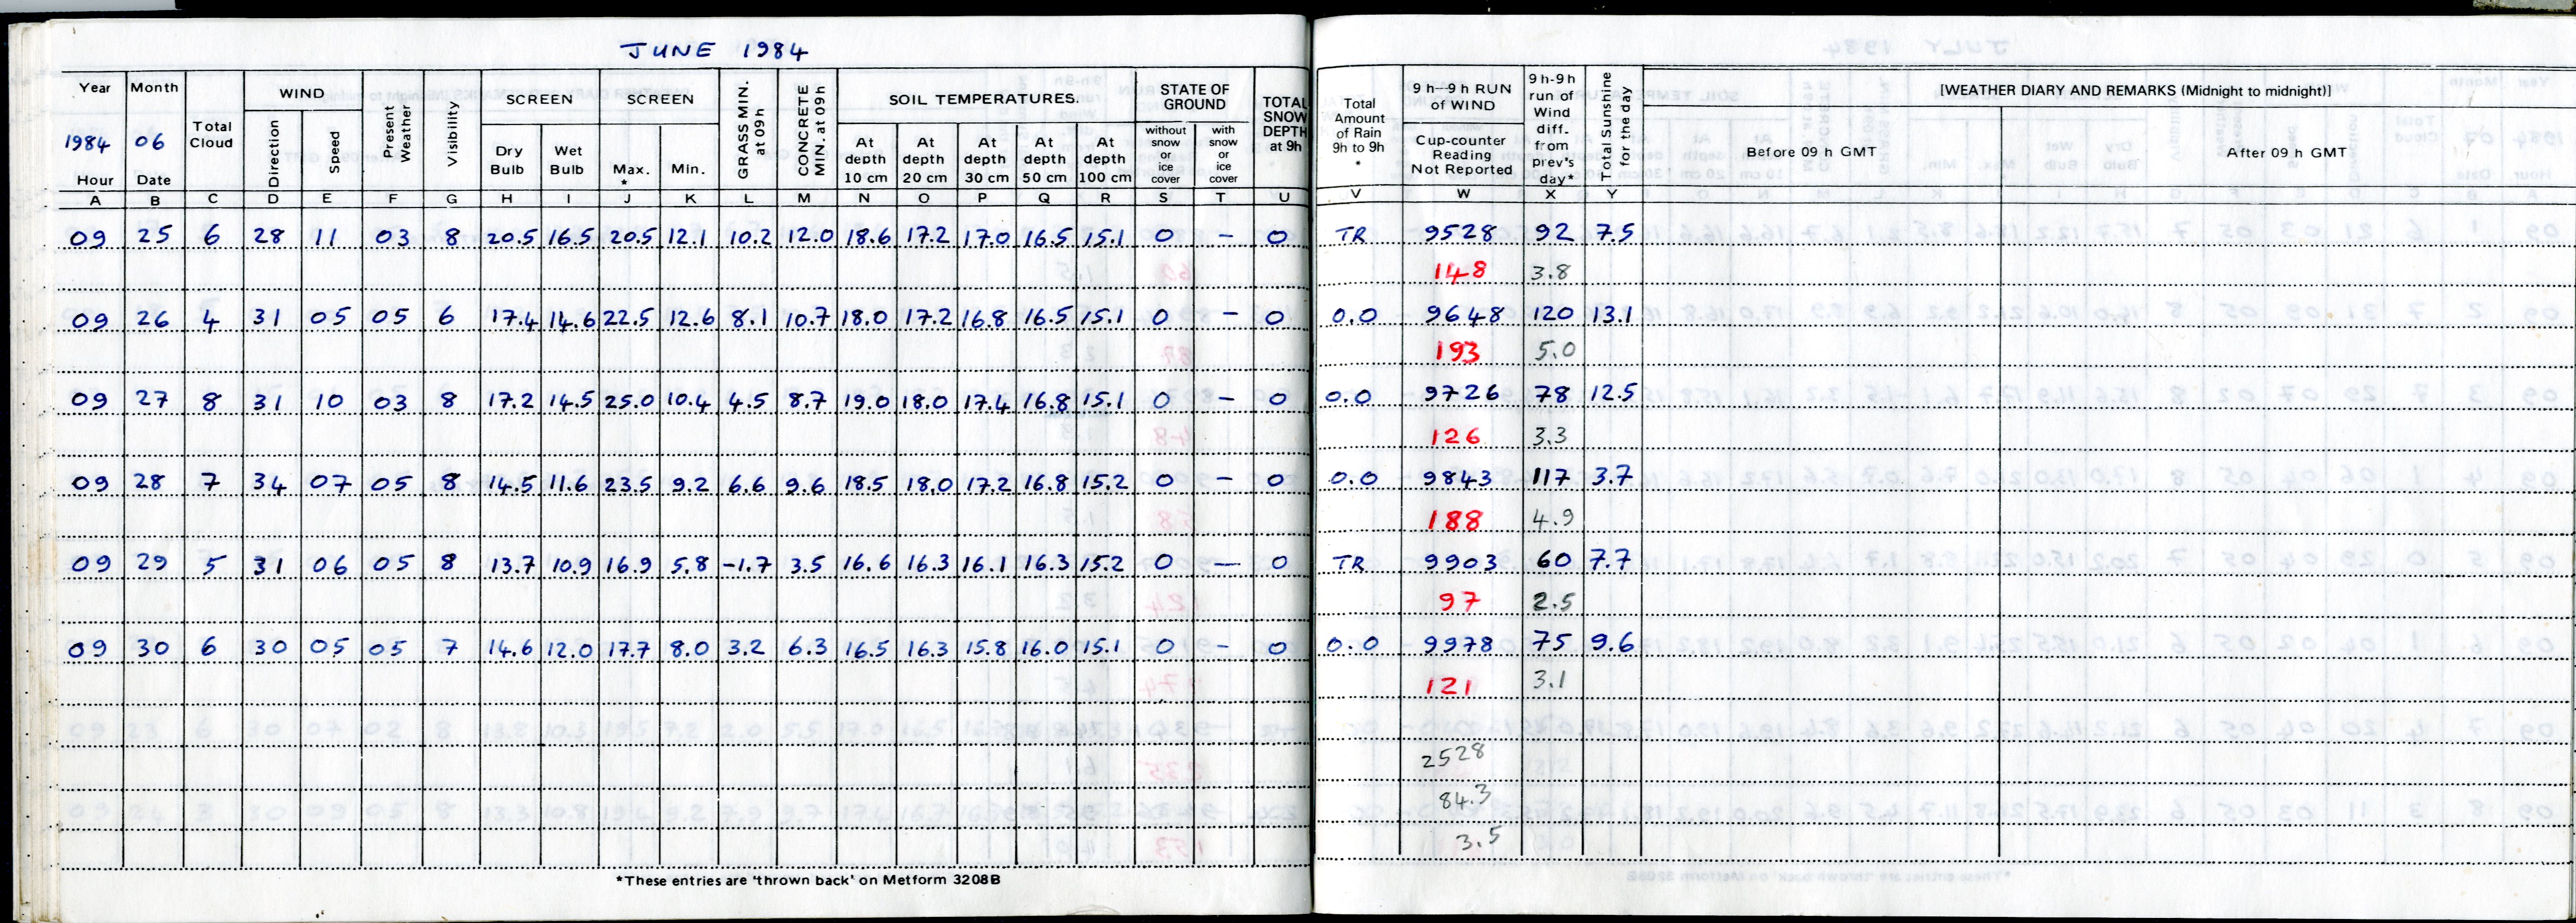 JUNE 1984
Year Month Total Cloud WIND Present Weather Visibility SCREEN SCREEN GRASS MIN. at 09h CONCRETE MIN. at 09h SOIL TEMPERATURES. STATE OF GROUND TOTAL SNOW DEPTH at 9h Total Amount of Rain 9h to 9h * 9 h–9 h RUN of WIND 9 h-9 h run of Wind diff. from prev's day* Total Sunshine for the day [WEATHER DIARY AND REMARKS (Midnight to midnight)]
1984 06 Direction Speed Dry Bulb Wet Bulb Max. * Min. At depth 10 cm At depth 20 cm At depth 30 cm At depth 50 cm At depth 100 cm without snow or ice cover with snow or ice cover Cup-counter Reading Not Reported Before 09 h GMT After 09 h GMT
Hour Date
A B C D E F G H I J K L M N O P Q R S T U V W X Y
09 25 6 28 11 03 8 20.5 16.5 20.5 12.1 10.2 12.0 18.6 17.2 17.0 16.5 15.1 0 – 0 TR 9528 92 7.5
148 3.8
09 26 4 31 05 05 6 17.4 14.6 22.5 12.6 8.1 10.7 18.0 17.2 16.8 16.5 15.1 0 – 0 0.0 9648 120 13.1
193 5.0
09 27 8 31 10 03 8 17.2 14.5 25.0 10.4 4.5 8.7 19.0 18.0 17.4 16.8 15.1 0 – 0 0.0 9726 78 12.5
126 3.3
09 28 7 34 07 05 8 14.5 11.6 23.5 9.2 6.6 9.6 18.5 18.0 17.2 16.8 15.2 0 – 0 0.0 9843 117 3.7
188 4.9
09 29 5 31 06 05 8 13.7 10.9 16.9 5.8 -1.7 3.5 16.6 16.3 16.1 16.3 15.2 0 – 0 TR 9903 60 7.7
97 2.5
09 30 6 30 05 05 7 14.6 12.0 17.7 8.0 3.2 6.3 16.5 16.3 15.8 16.0 15.1 0 – 0 0.0 9978 75 9.6
121 3.1
2528
84.3
3.5
*These entries are 'thrown back' on Metform 3208B